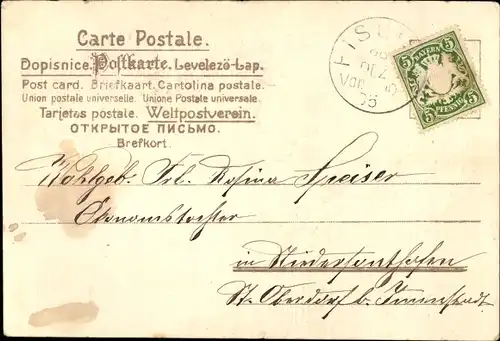 Carte Postale.
Dopisnice. Postkarte. Levelező-Lap.
Post card. Briefkaart. Cartolina postale.
Union postale universelle. Unione Postale universale.
Tarjetas postale. Weltpostverein.
ОТКРЫТОЕ ПИСЬМО.
Brefkort.
5 BAYERN 5
5 PFENNIG 5
DEZ
Wohlgeb. Frl. Rosina Speiser
Ökonomstochter
in Niedersonthofen
St. Oberdorf b. Immenstadt